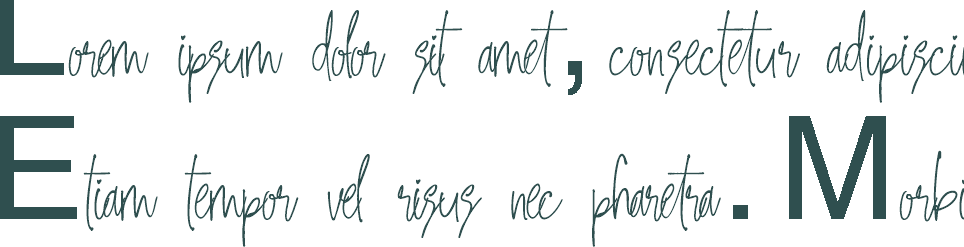 Lorem ipsum dolor sit amet, consectetur adipisci
Etiam tempor vel risus nec pharetra. Morbi